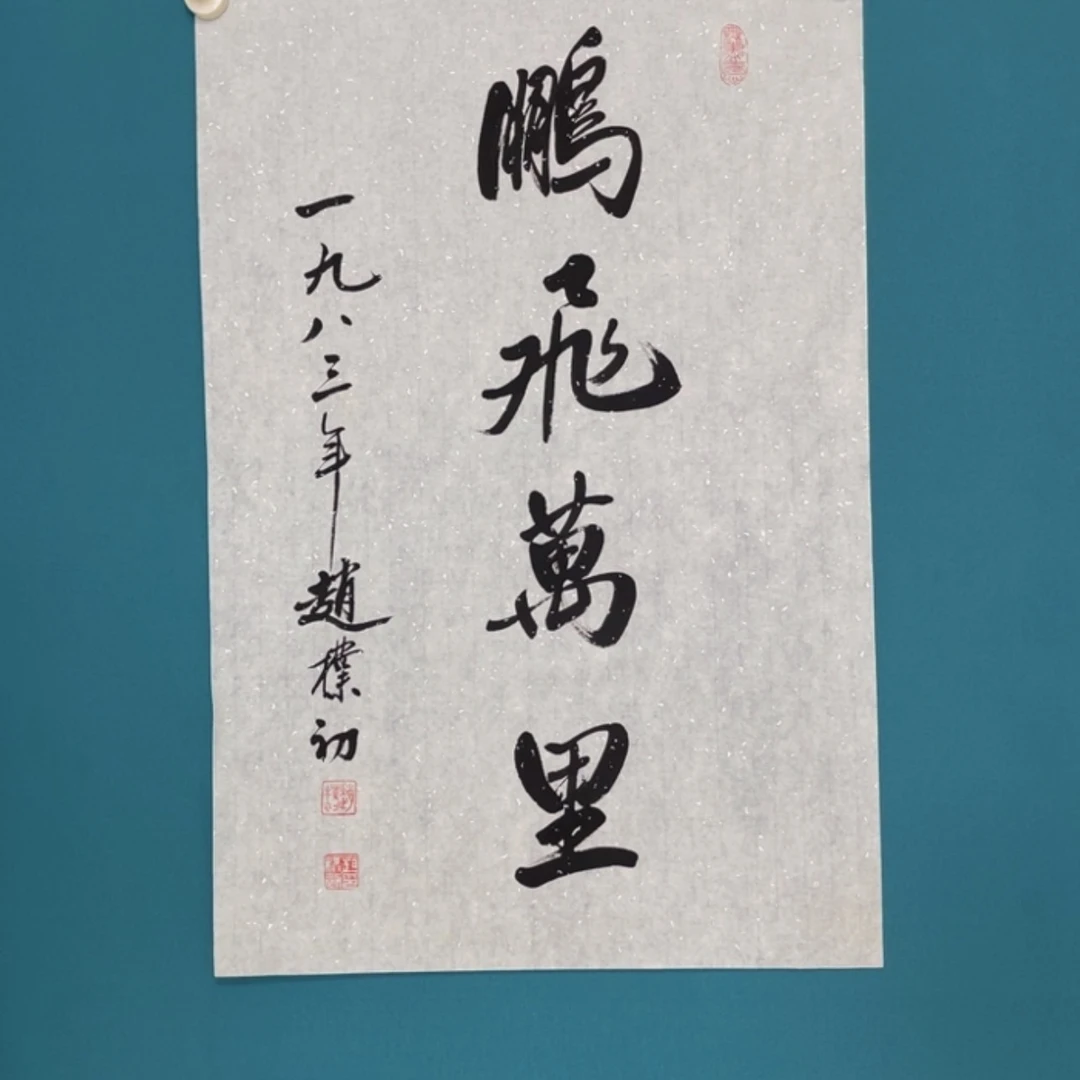 鵬飛萬里
一九八三年趙樸初